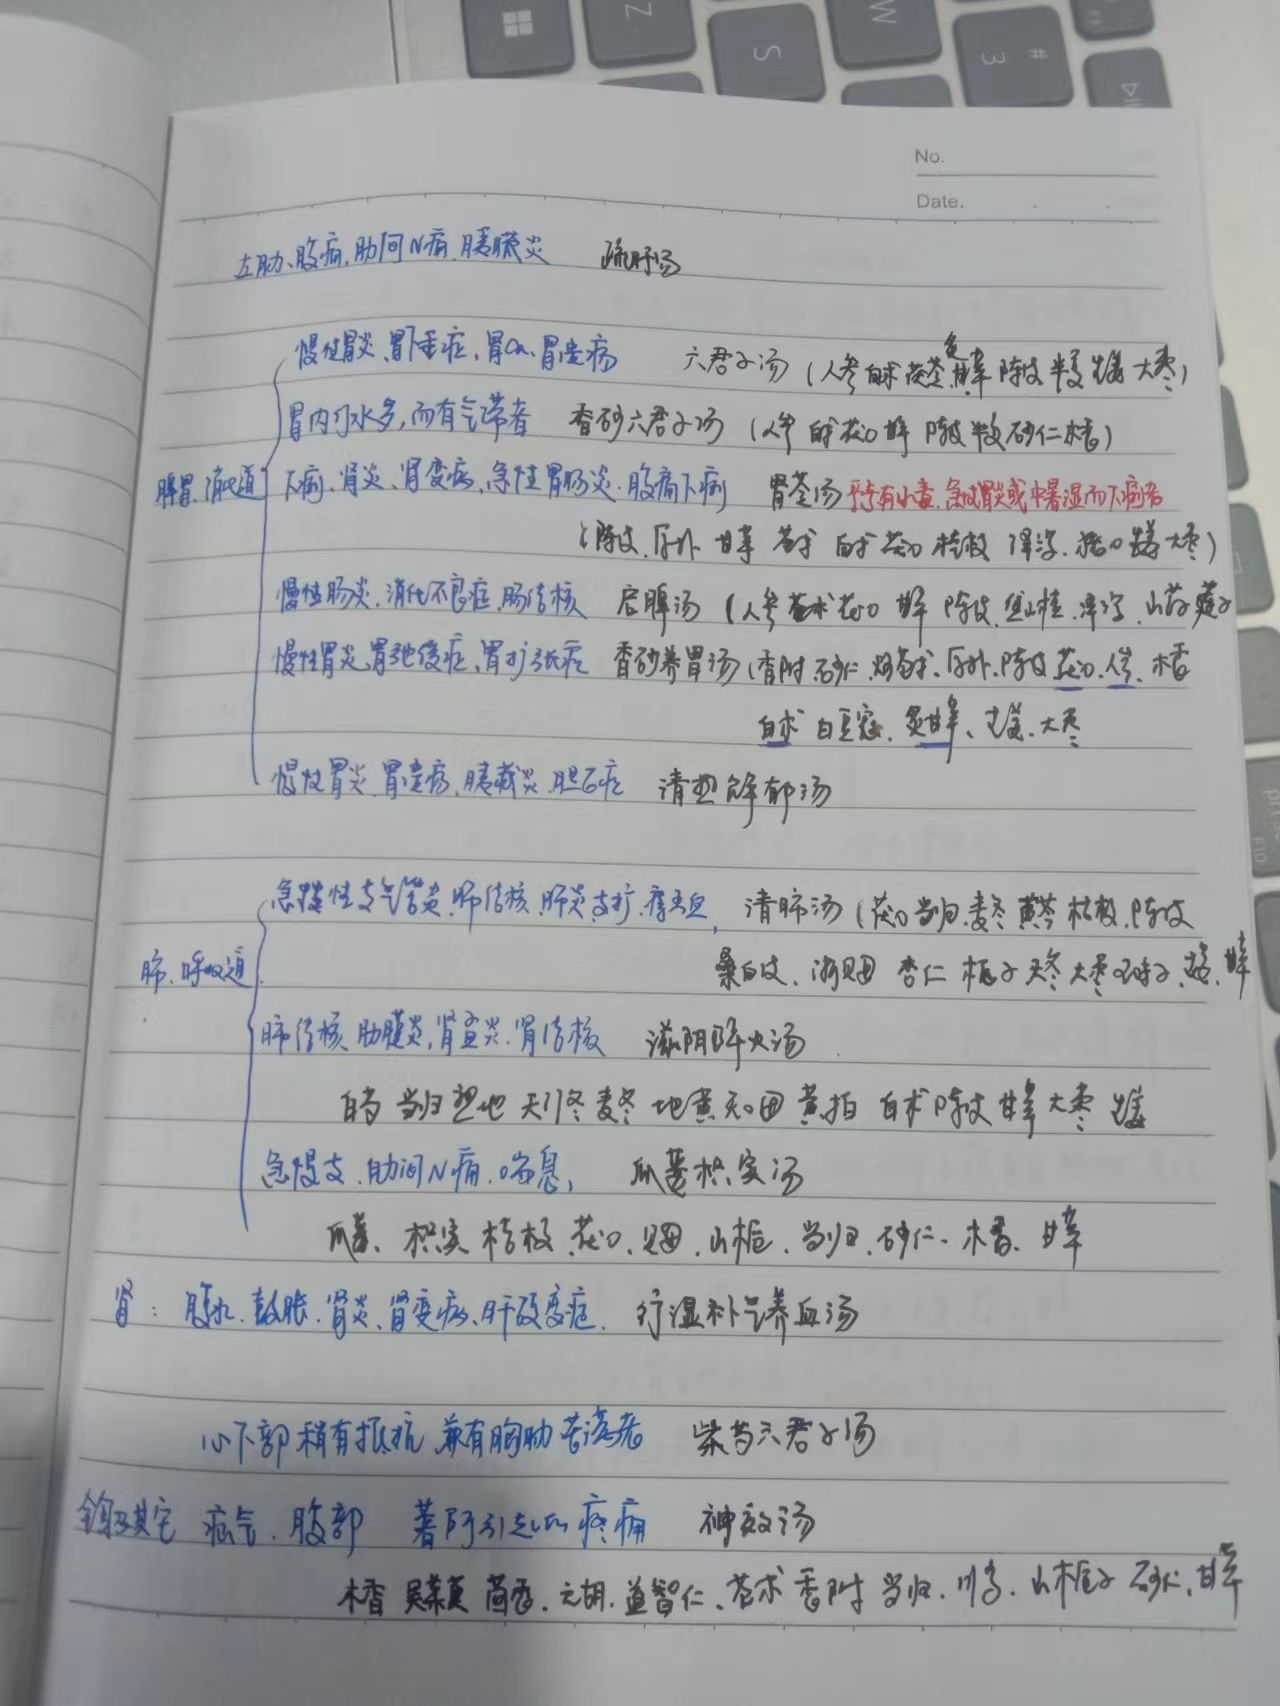 No.
Date.
左肋、腹痛、肋间N痛、胰臓炎 疏肝汤
慢性胃炎、胃下垂症、胃Ca、胃溃疡 六君子汤（人参 白术 茯苓 炙甘草 陈皮 半夏 生姜 大枣）
胃内停水多，而有气滞者 香砂六君子汤（人参 白术 茯口 甘草 陈皮 半夏 砂仁 木香）
脾胃、消化道 下痢、肾炎、肾变病、急性胃肠炎、腹痛下痢 胃苓汤 急性胃炎或中暑湿而下痢者
（陈皮、厚朴 甘草 苍术 白术 茯口 桂枝 泽泻、猪口 生姜 大枣）
慢性肠炎、消化不良症、肠结核 启脾汤（人参 苍术 茯口 甘草 陈皮、山楂、泽泻、山药 莲子
慢性胃炎、胃弛缓症、胃扩张症 香砂养胃汤（香附 砂仁 苍术、厚朴、陈皮 茯口、人参、木香
白术 白豆蔻、炙甘草、生姜、大枣
慢性胃炎、胃溃疡、胰臓炎、胆石症 清热解郁汤
急慢性支气管炎、肺结核、肺炎、支扩、 清肺汤（茯口 当归、麦冬 黄芩 桔梗、陈皮
肺、呼吸道
桑白皮、浙贝母 杏仁 栀子 天冬 大枣 五味子、生姜、甘草
肺结核、肋膜炎、肾盂炎、肾结核 滋阴降火汤
白芍 当归 熟地 天门冬 麦冬 地黄 知母 黄柏 白术 陈皮 甘草 大枣 生姜
急慢支、肋间N痛、喘息， 瓜蒌枳实汤
瓜蒌、枳实 桔梗、茯口、贝母、山栀、当归、砂仁、木香、甘草
肾： 腹水、鼓胀、肾炎、肾变病、肝硬变症、 行湿补气养血汤
心下部稍有抵抗、兼有胸肋苦满者 柴芍六君子汤
疝气、腹部 著阿引起的疼痛 神效汤
木香 吴茱萸 茴香、元胡、益智仁、苍术 香附 当归、川乌、山栀子 砂仁、甘草